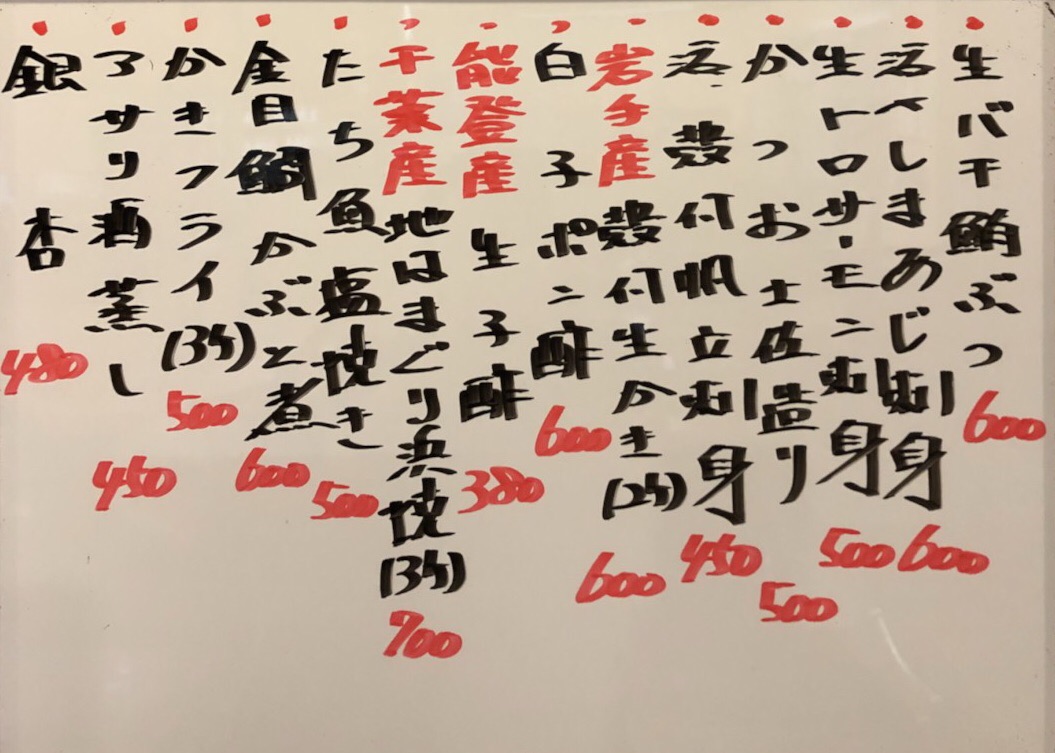 生バチ鮪ぶつ 600
活〆しまあじ刺身 600
生トロサーモン刺身 500
かつお土佐造り 500
活殻付帆立刺身 450
岩手産殻付生かき(2ケ) 600
白子ポン酢 600
能登産生子酢 380
千葉産地はまぐり浜焼(3ケ) 700
たち魚塩焼き 500
金目鯛かぶと煮 600
かきフライ(3ケ) 500
アサリ酒蒸し 450
銀杏 480